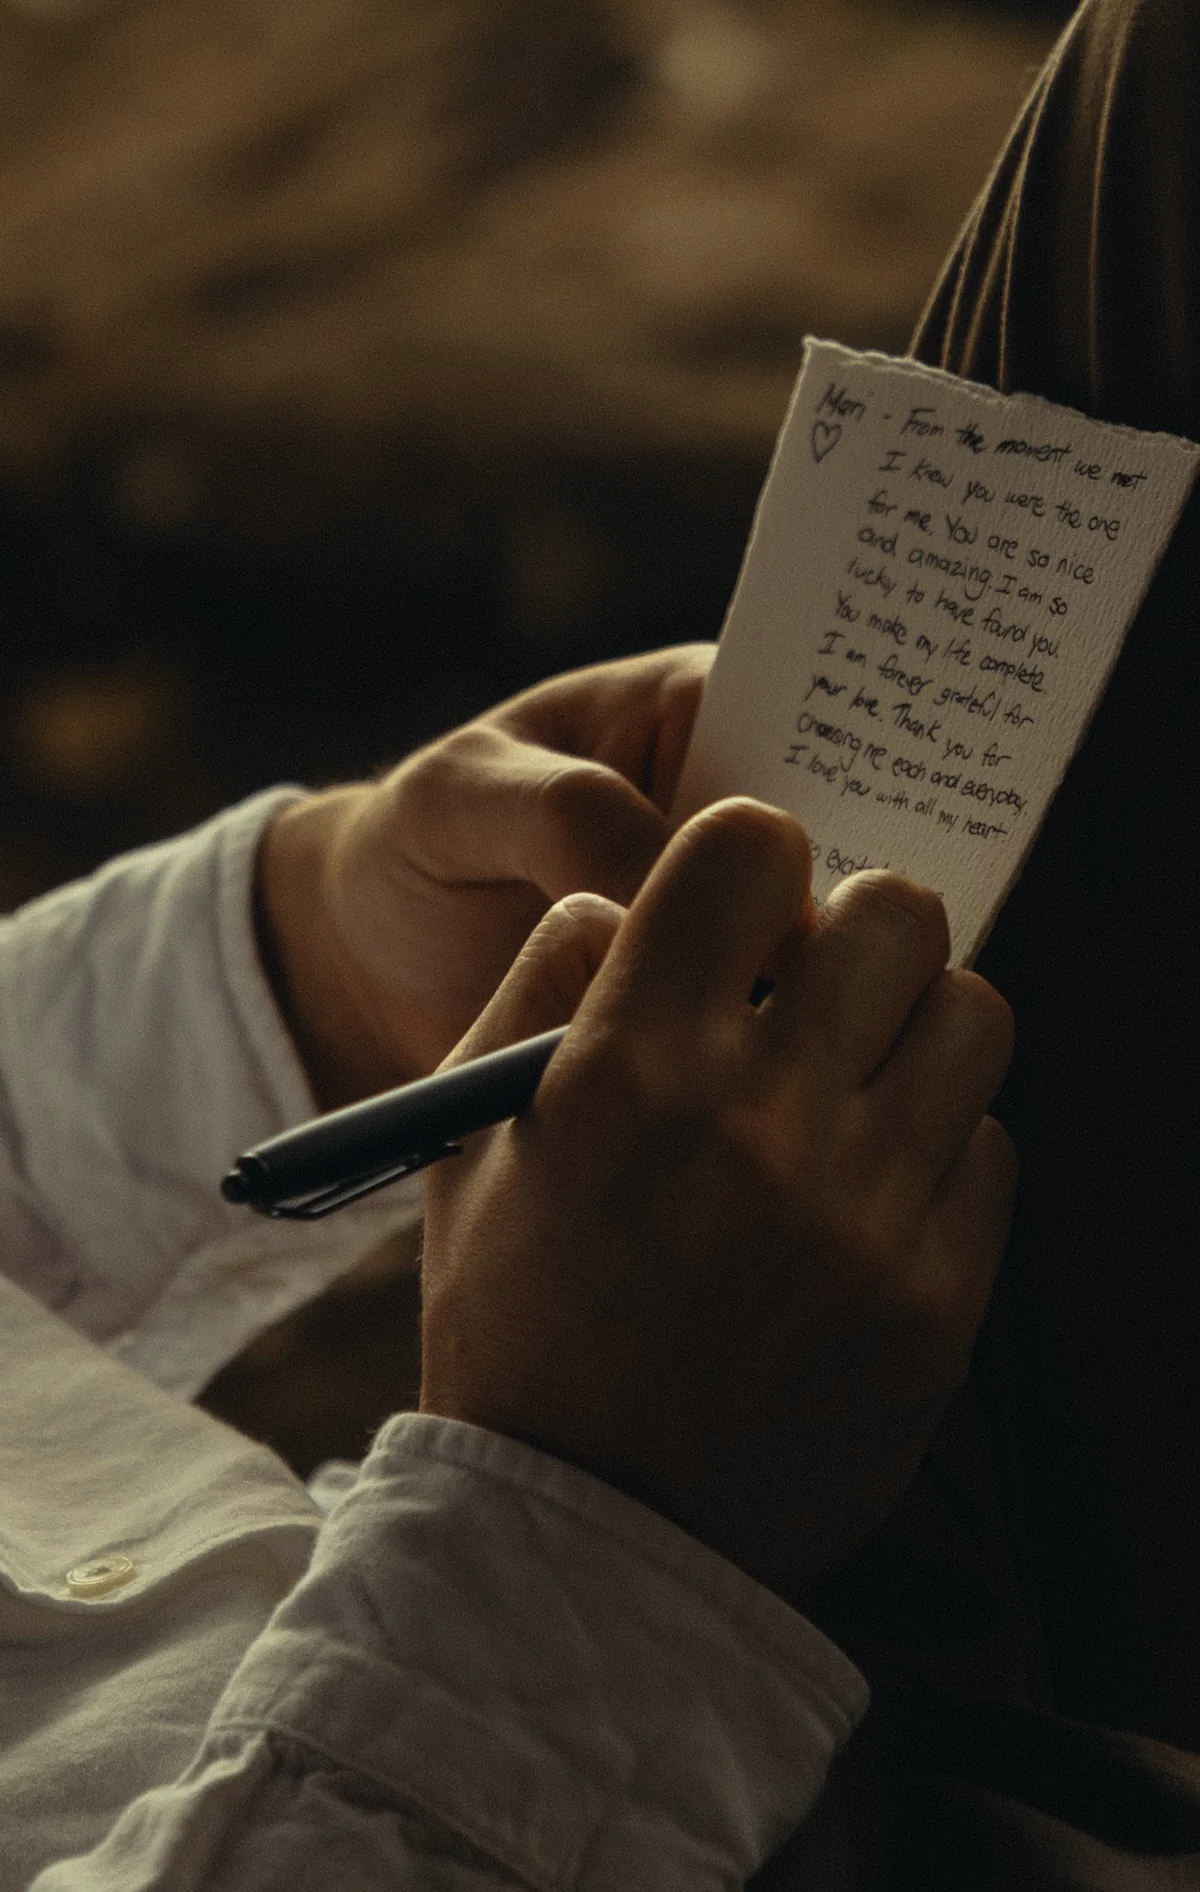 Mari - From the moment we met
I knew you were the one
for me. You are so nice
and amazing. I am so
lucky to have found you.
You make my life complete
I am forever grateful for
your love. Thank you for
choosing me each and everyday.
I love you with all my heart.